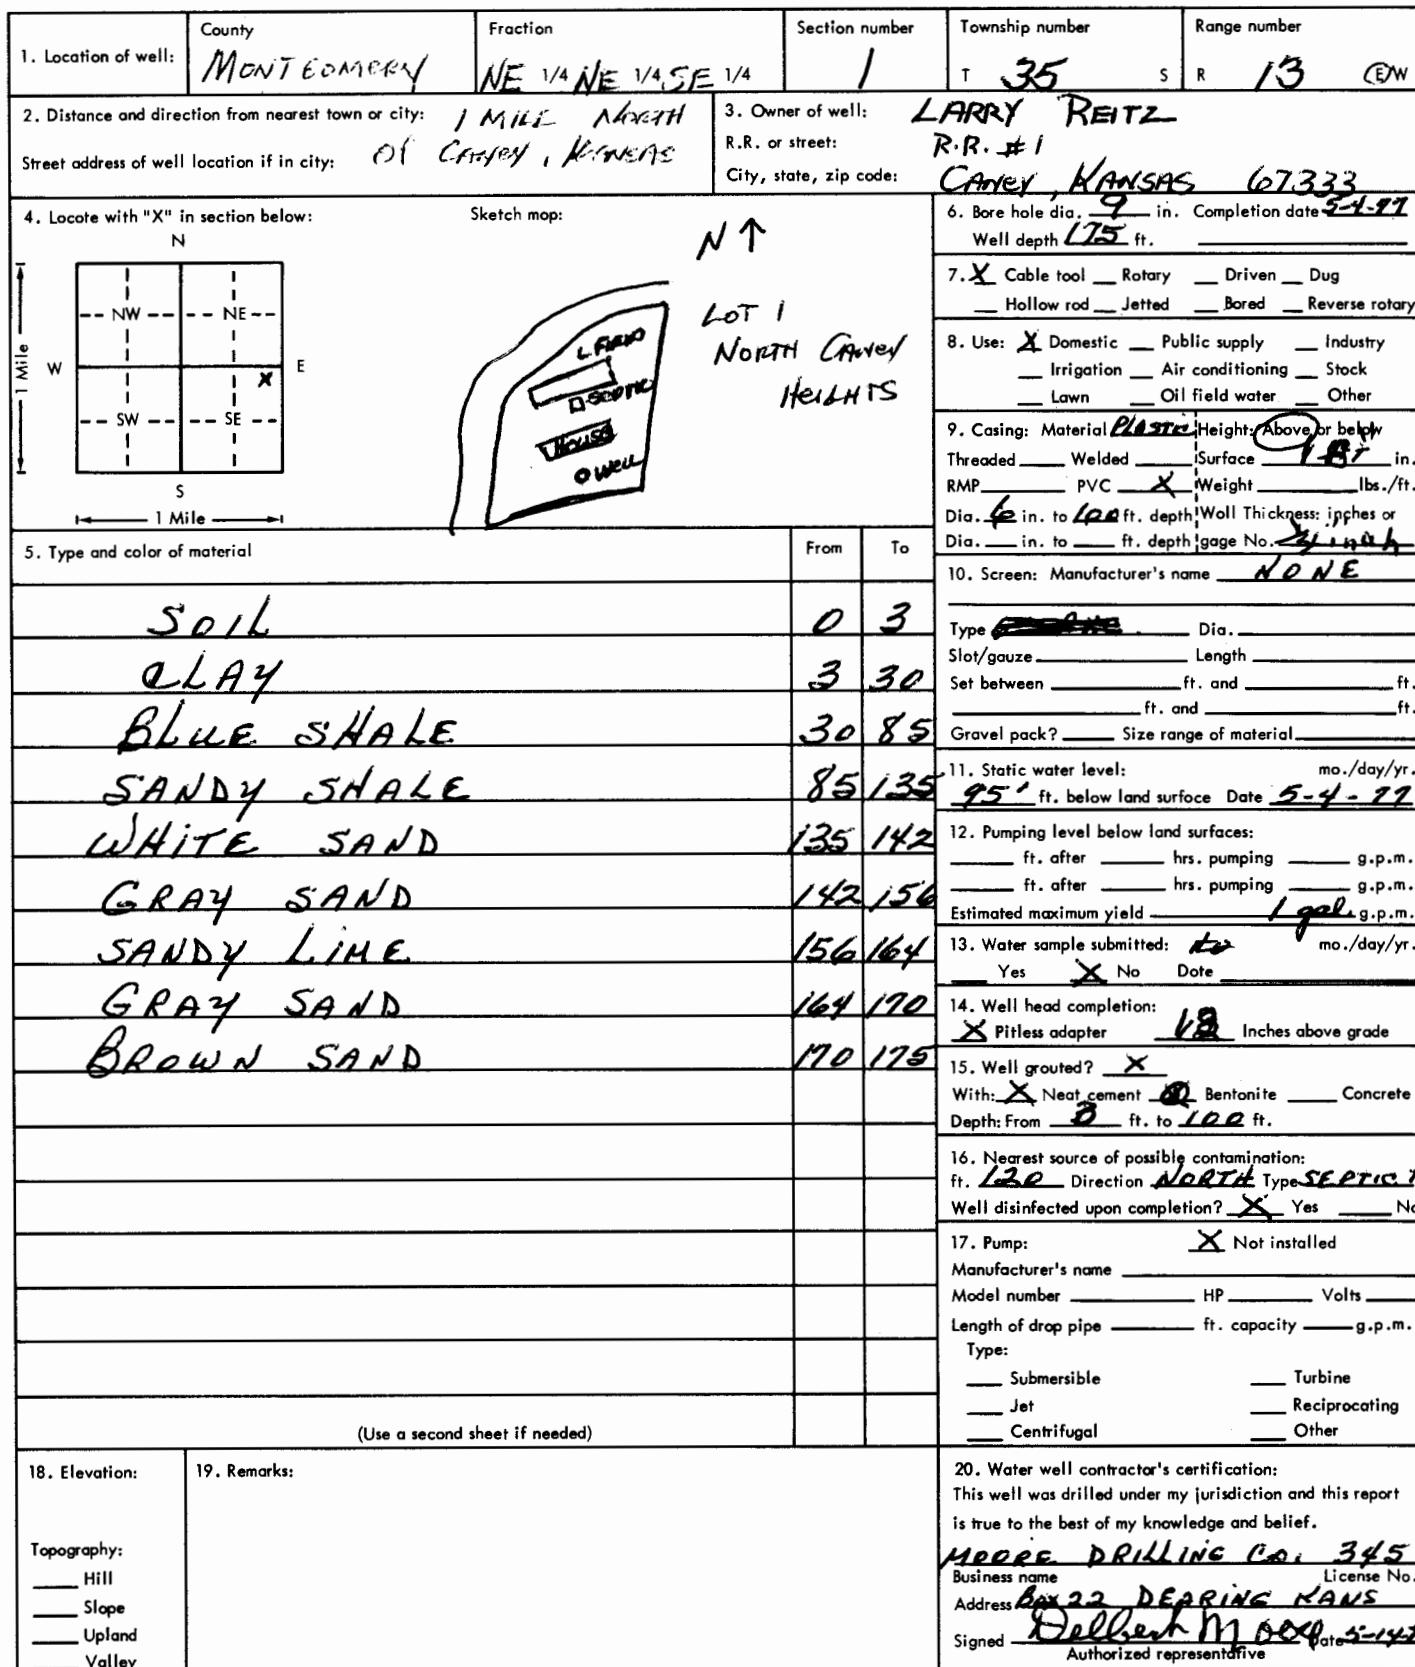 County Fraction Section number Township number Range number
1. Location of well: MONTGOMERY NE 1/4 NE 1/4 SE 1/4 1 T 35 S R 13 E/W
2. Distance and direction from nearest town or city: 1 MILE NORTH
Street address of well location if in city: Of CANEY, KANSAS
3. Owner of well: LARRY REITZ
R.R. or street: R.R. #1
City, state, zip code: CANEY, KANSAS 67333
4. Locate with "X" in section below: Sketch map:
N
NW NE
W X E
SW SE
S
1 Mile
1 Mile
N ↑
LOT 1
NORTH CANEY
HEIGHTS
L. FIELD
SEPTIC
HOUSE
O WELL
5. Type and color of material From To
SOIL 0 3
CLAY 3 30
BLUE SHALE 30 85
SANDY SHALE 85 135
WHITE SAND 135 142
GRAY SAND 142 156
SANDY LIME 156 164
GRAY SAND 164 170
BROWN SAND 170 175
(Use a second sheet if needed)
6. Bore hole dia. 9 in. Completion date 5-4-77
Well depth 175 ft.
7. X Cable tool __ Rotary __ Driven __ Dug
__ Hollow rod __ Jetted __ Bored __ Reverse rotary
8. Use: X Domestic __ Public supply __ Industry
__ Irrigation __ Air conditioning __ Stock
__ Lawn __ Oil field water __ Other
9. Casing: Material PLASTIC Height: Above or below
Threaded __ Welded __ Surface 1 FT in.
RMP __ PVC X Weight __ lbs./ft.
Dia. 6 in. to 100 ft. depth Wall Thickness: inches or
Dia. __ in. to __ ft. depth gage No. inch
10. Screen: Manufacturer's name NONE
Type __ Dia. __
Slot/gauze __ Length __
Set between __ ft. and __ ft.
__ ft. and __ ft.
Gravel pack? __ Size range of material __
11. Static water level: mo./day/yr.
95' ft. below land surface Date 5-4-77
12. Pumping level below land surfaces:
__ ft. after __ hrs. pumping __ g.p.m.
__ ft. after __ hrs. pumping __ g.p.m.
Estimated maximum yield 1 gal. g.p.m.
13. Water sample submitted: mo./day/yr.
__ Yes X No Date __
14. Well head completion:
X Pitless adapter 12 Inches above grade
15. Well grouted? X
With: X Neat cement __ Bentonite __ Concrete
Depth: From 0 ft. to 100 ft.
16. Nearest source of possible contamination:
ft. 120 Direction NORTH Type SEPTIC T
Well disinfected upon completion? X Yes __ No
17. Pump: X Not installed
Manufacturer's name __
Model number __ HP __ Volts __
Length of drop pipe __ ft. capacity __ g.p.m.
Type:
__ Submersible __ Turbine
__ Jet __ Reciprocating
__ Centrifugal __ Other
18. Elevation: 19. Remarks:
Topography:
__ Hill
__ Slope
__ Upland
__ Valley
20. Water well contractor's certification:
This well was drilled under my jurisdiction and this report
is true to the best of my knowledge and belief.
MOORE DRILLING CO. 345
Business name License No.
Address Box 22 DEARING KANS
Signed Delbert Moore Date 5-14-7
Authorized representative